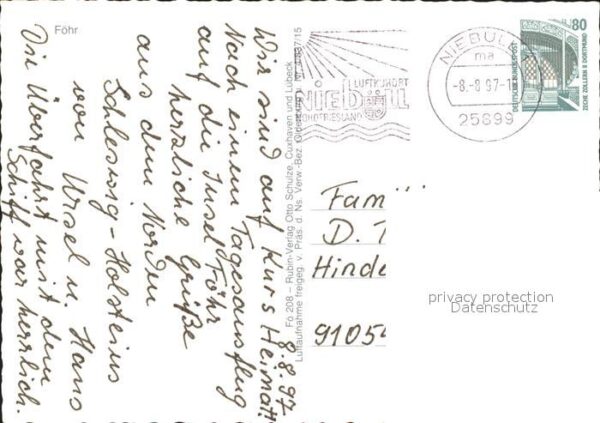 Föhr
8.8.97
Wir sind auf Kurs Heimat!
Nach einem Tagesausflug
auf die Insel Föhr
herzliche Grüße
aus dem Norden
Schleswig-Holsteins
von Ursel u. Hans
Die Überfahrt mit dem
Schiff war herrlich.
Fö 208 – Rubin-Verlag Otto Schulze, Cuxhaven und Lübeck
Luftaufnahme freigeg. v. Präs. d. Ns. Verw.-Bez.
LUFTKURORT
NIEBÜLL
NORDFRIESLAND
NIEBÜLL
ma
-8.-8.97-1
25899
80
DEUTSCHE BUNDESPOST
ZECHE ZOLLERN II DORTMUND
Fami
D.
Hinde
91054
privacy protection
Datenschutz